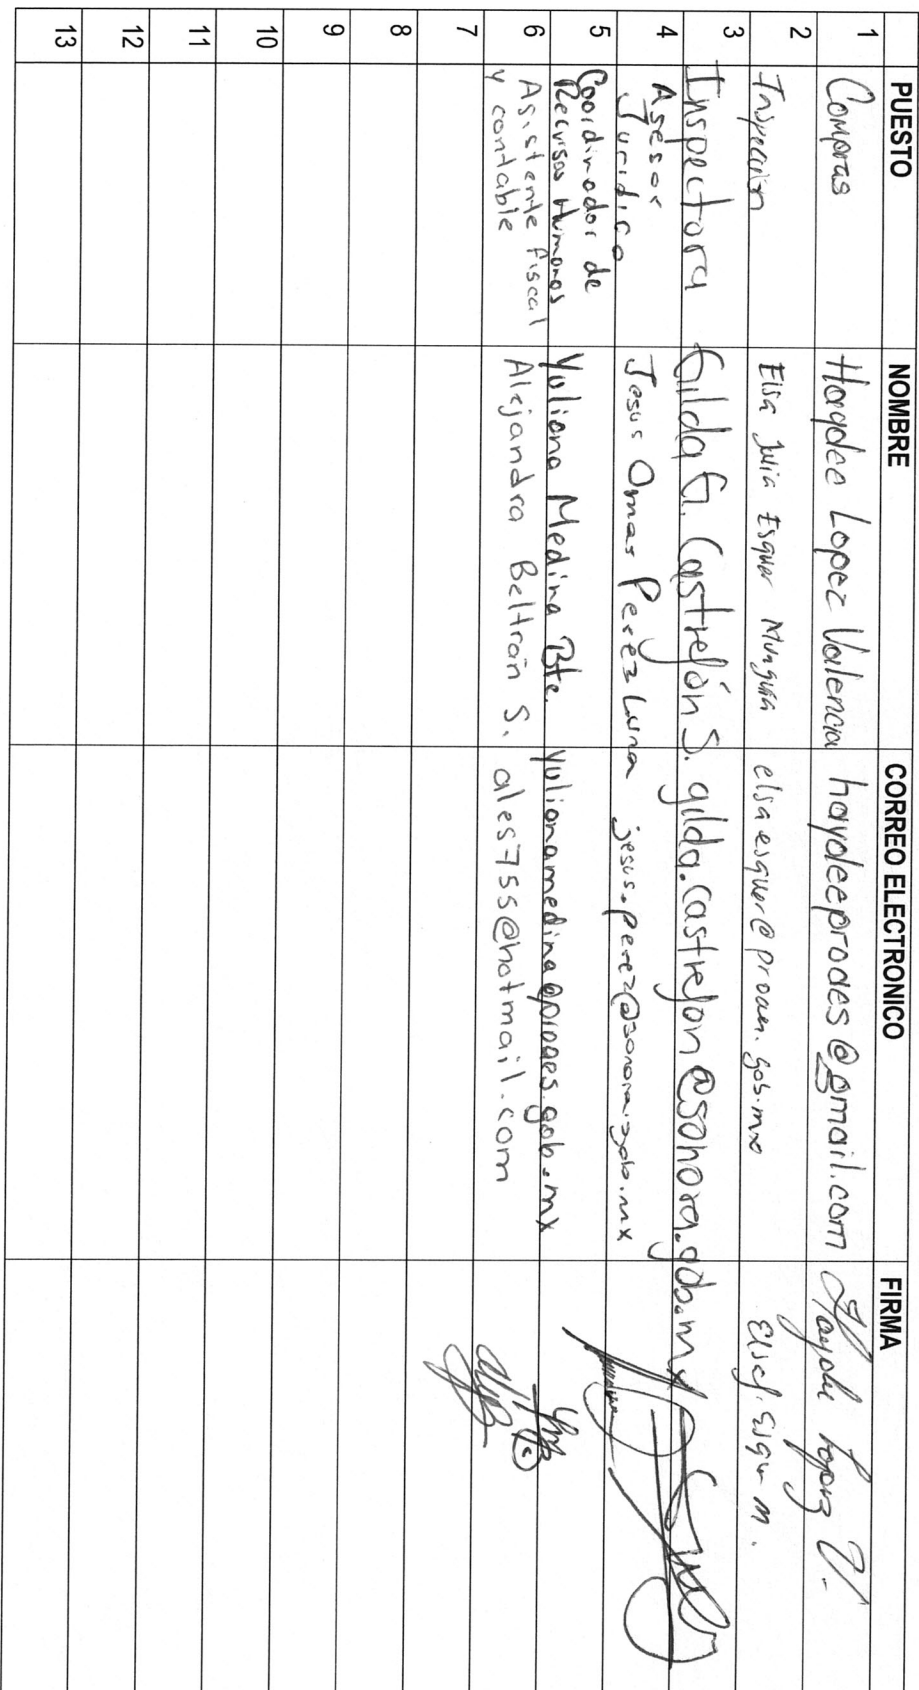 PUESTO NOMBRE CORREO ELECTRONICO FIRMA
1 Compras Haydee Lopez Valencia haydeeprodes@gmail.com Haydee Lopez V.
2 Inspección Elsa Julia Esquer Munguia elsaesquer@proaes.gob.mx Elsa J. Esquer M.
3 Inspectora Gilda G. Castrejón S. gilda.castrejon@sonora.gob.mx
4 Asesor
Juridico Jesus Omar Perez Luna jesus.perez@sonora.gob.mx
5 Coordinador de
Recursos Humanos Yuliana Medina Bte. yulianamedina@proaes.gob.mx
6 Asistente fiscal
y contable Alejandra Beltrán S. ales755@hotmail.com
7
8
9
10
11
12
13